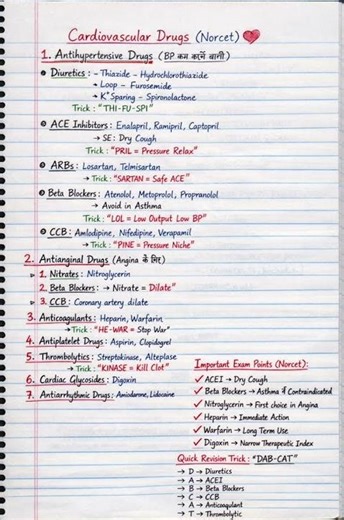 Cardiovascular Drugs (Norcet)
1. Antihypertensive Drugs (BP कम करने वाली)
Diuretics : - Thiazide - Hydrochlorothiazide
→ Loop - Furosemide
→ K⁺ Sparing - Spironolactone
Trick : "THI-FU-SPI"
ACE Inhibitors : Enalapril, Ramipril, Captopril
→ SE: Dry Cough
Trick : "PRIL = Pressure Relax"
ARBs : Losartan, Telmisartan
→ Trick : "SARTAN = Safe ACE"
Beta Blockers : Atenolol, Metoprolol, Propranolol
→ Avoid in Asthma
Trick : "LOL = Low Output Low BP"
CCB : Amlodipine, Nifedipine, Verapamil
→ Trick : "PINE = Pressure Niche"
2. Antianginal Drugs (Angina के लिए)
1. Nitrates : Nitroglycerin
2. Beta Blockers : → Nitrate = Dilate"
3. CCB : Coronary artery dilate
3. Anticoagulants : Heparin, Warfarin
→ Trick : "HE-WAR = Stop War"
4. Antiplatelet Drugs : Aspirin, Clopidogrel
5. Thrombolytics : Streptokinase, Alteplase
→ Trick : "KINASE = Kill Clot"
6. Cardiac Glycosides : Digoxin
7. Antiarrhythmic Drugs : Amiodarone, Lidocaine
Important Exam Points (Norcet):
✓ ACEI → Dry Cough
✓ Beta Blockers → Asthma Contraindicated
✓ Nitroglycerin → First choice in Angina
✓ Heparin → Immediate Action
✓ Warfarin → Long Term Use
✓ Digoxin → Narrow Therapeutic Index
Quick Revision Trick : "DAB-CAT"
→ D → Diuretics
→ A → ACEI
→ B → Beta Blockers
→ C → CCB
→ A → Anticoagulant
→ T → Thrombolytic